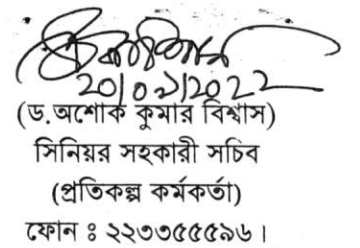 (ড.অশোক কুমার বিশ্বাস)
সিনিয়র সহকারী সচিব
(প্রতিকল্প কর্মকর্তা)
ফোন ঃ ২২৩৩৫৫৫৯৬।